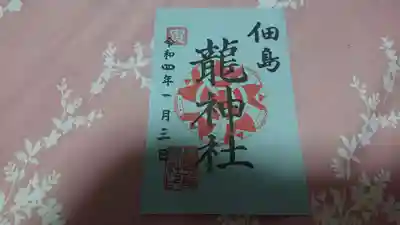 佃島
龍神社
令和四年一月三日